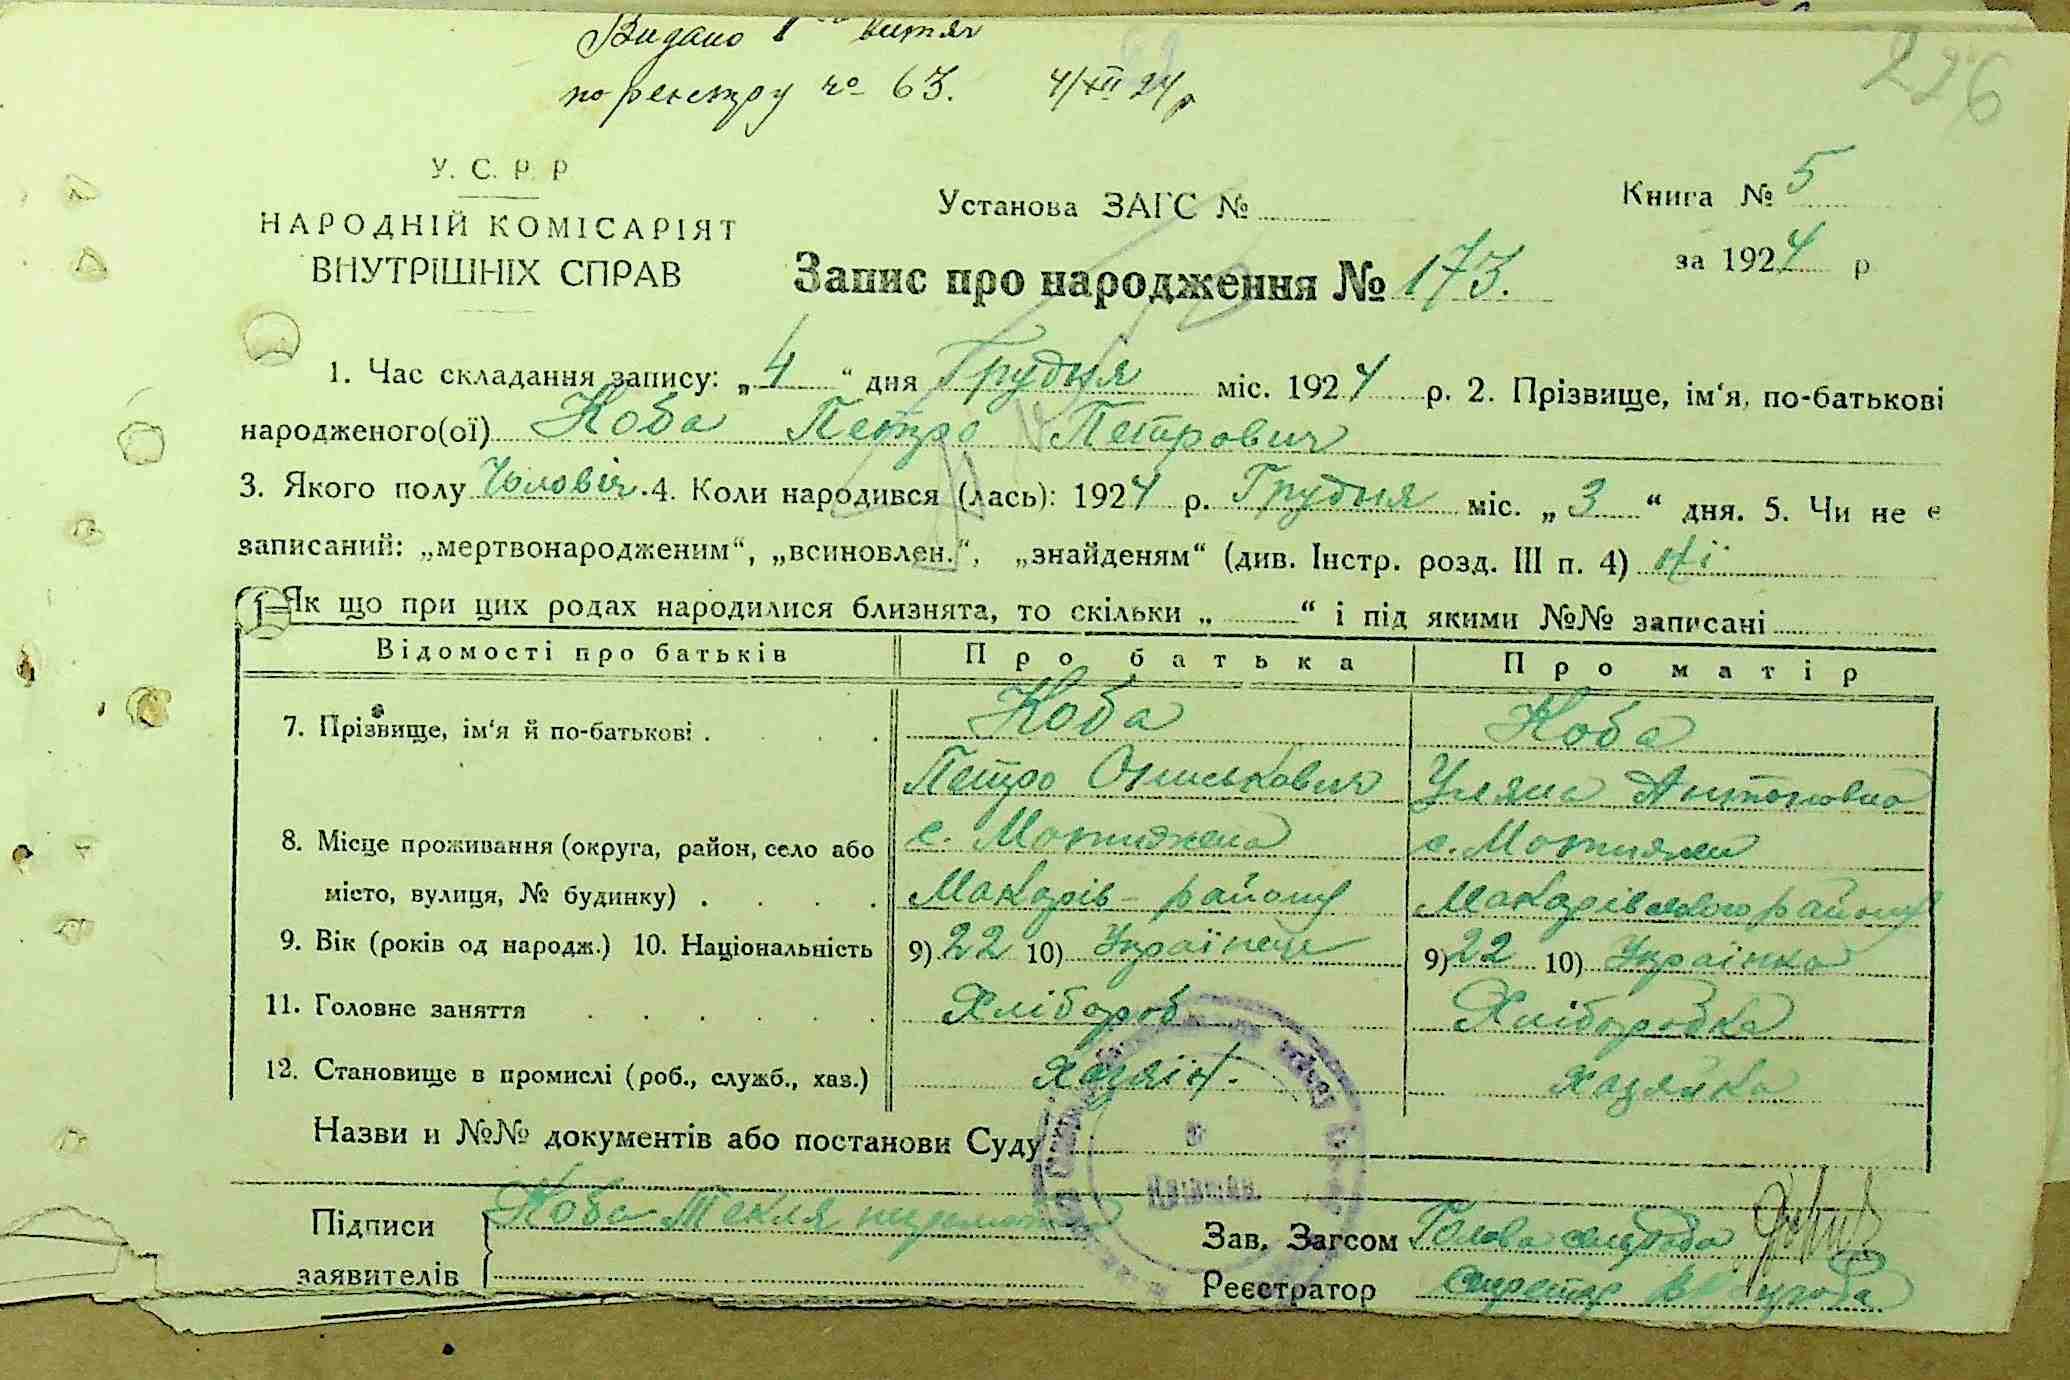 Видано 1 витяг
по реєстру № 63. 4/XII 24 р
226
У. С. Р. Р
НАРОДНІЙ КОМІСАРІЯТ
ВНУТРІШНІХ СПРАВ
Установа ЗАГС №
Книга № 5
за 1924 р
Запис про народження № 173.
1. Час складання запису: „4“ дня Грудня міс. 1924 р. 2. Прізвище, ім‘я, по-батькові
народженого(ої) Коба Петро Петрович
3. Якого полу Чоловіч. 4. Коли народився (лась): 1924 р. Грудня міс. „3“ дня. 5. Чи не є
записаний: „мертвонародженим“, „всиновлен.“, „знайденям“ (див. Інстр. розд. III п. 4) Ні
Як що при цих родах народилися близнята, то скільки „ “ і під якими №№ записані
Відомості про батьків Про батька Про матір
7. Прізвище, ім‘я й по-батькові . Коба Коба
Петро Уляна Антоновна
8. Місце проживання (округа, район, село або с. Мотижена с. Мотижен
місто, вулиця, № будинку) . Макарів-району Макарівського району
9. Вік (років од народж.) 10. Національність 9) 22 10) Українець 9) 22 10) Українка
11. Головне заняття Хлібороб Хліборобка
12. Становище в промислі (роб., служб., хаз.) Хазяїн. Хазяйка
Назви и №№ документів або постанови Суду
Підписи Коба Текля Зав. Загсом Голова сельради
заявителів Реєстратор секретар